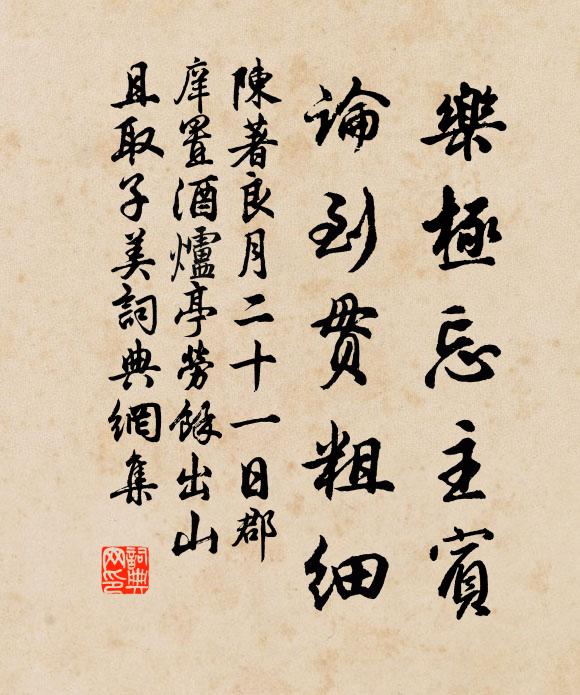 樂極忘主賓
論到貫粗細
陳著良月二十一日郡
庠置酒爐亭勞餘出山
且取子美詞典網集
詞典网印